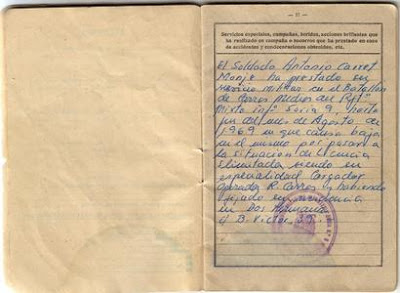 — 11 —
Servicios especiales, campañas, heridas, acciones brillantes que
ha realizado en campaña o socorros que ha prestado en caso
de accidentes y condecoraciones obtenidas, etc.
El Soldado Antonio
Monje ha prestado su
servicio Militar en el Batallón
de Carros Medios del Rgtº
Mixto Infª Soria 9 Hasta
fin del mes de Agosto de
1969 en que causa baja
en el mismo por pasar a
la situación de Licencia
Ilimitada siendo su
especialidad Cargador
R. Carros y habiendo
fijado su residencia
en Dos Hermanas